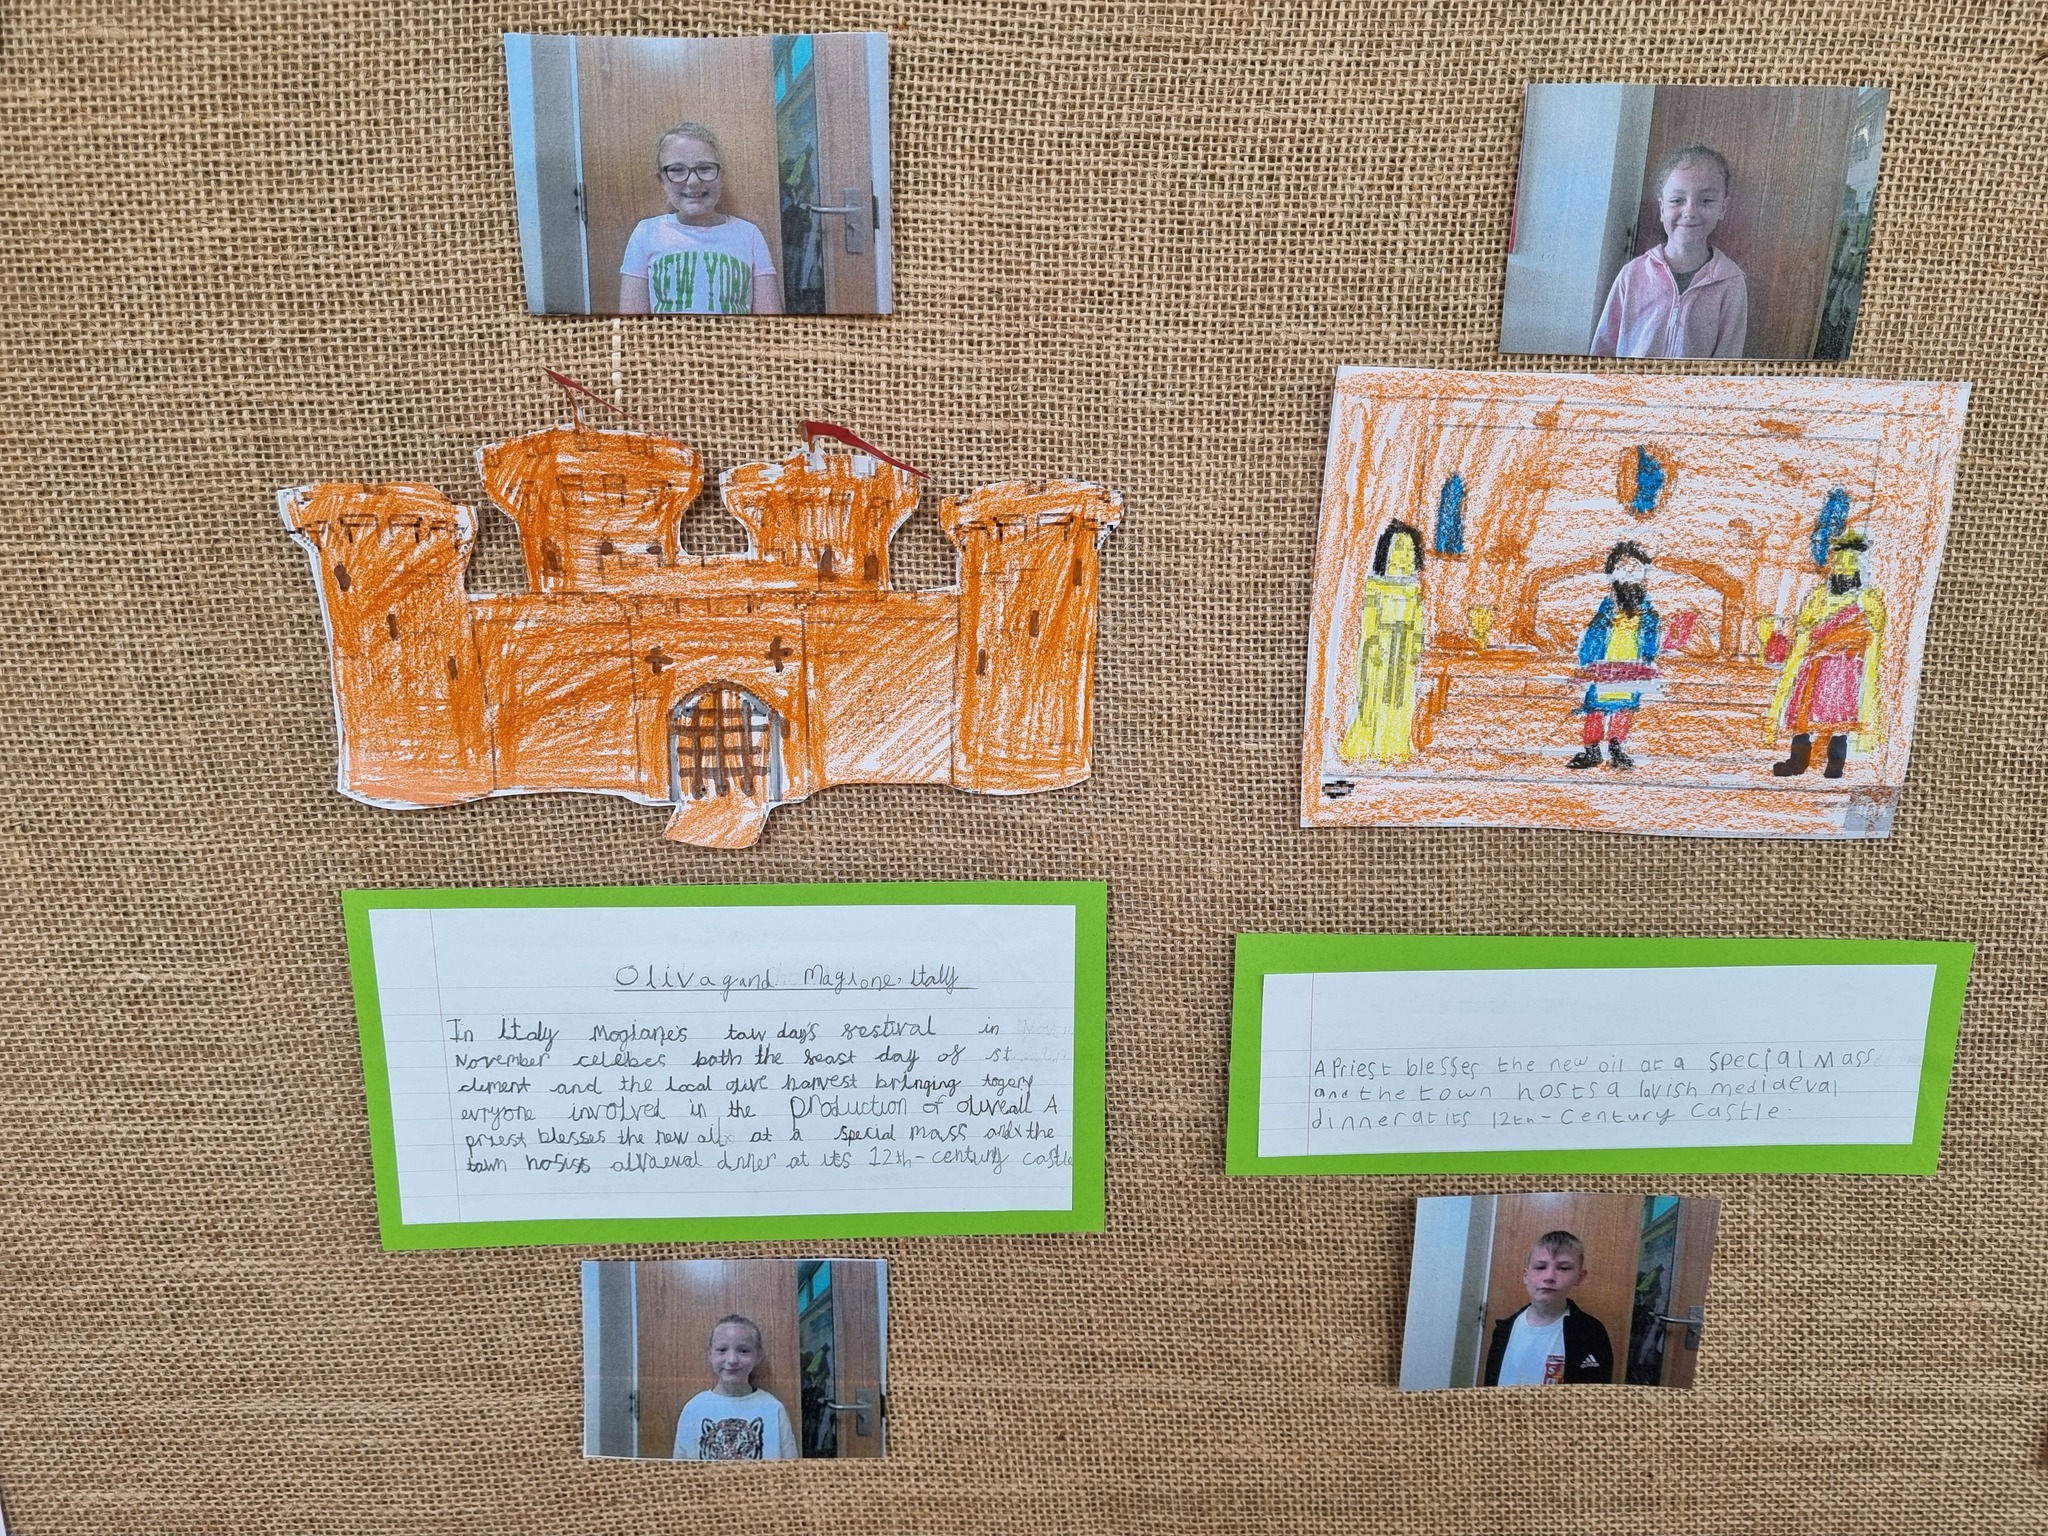 NEW YORK
Olivagand Magione, Italy
In Italy Mogiane's taw days festival in
November celebes both the feast day of st
clement and the local olive harvest bringing togery
evryone involved in the production of oliveall A
priest blesses the new oil at a special mass and the
town hosists dinner at its 12th-century castle
A Priest blesses the new oil at a special Mass
and the town hosts a lavish mediaeval
dinner at its 12th-Century Castle.
adidas